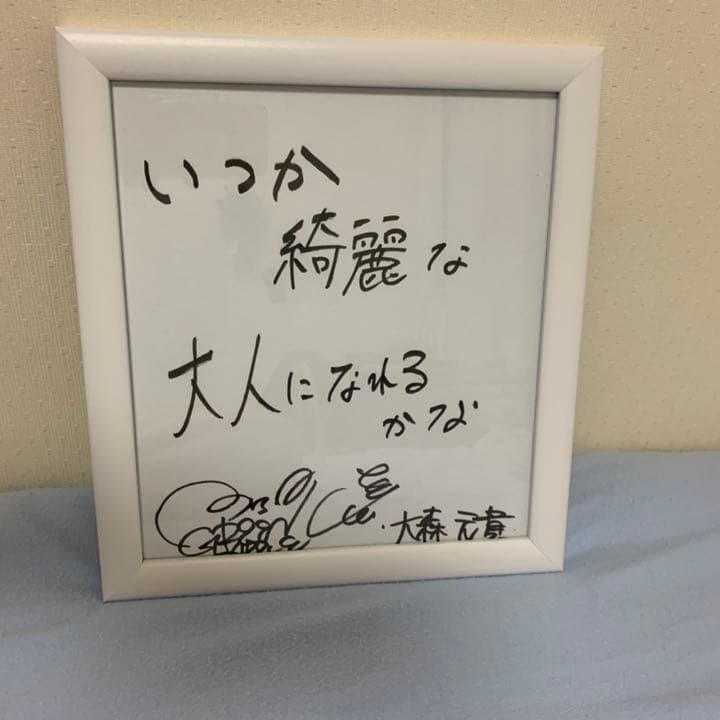 いつか
綺麗な
大人になれる
かな
大森元貴